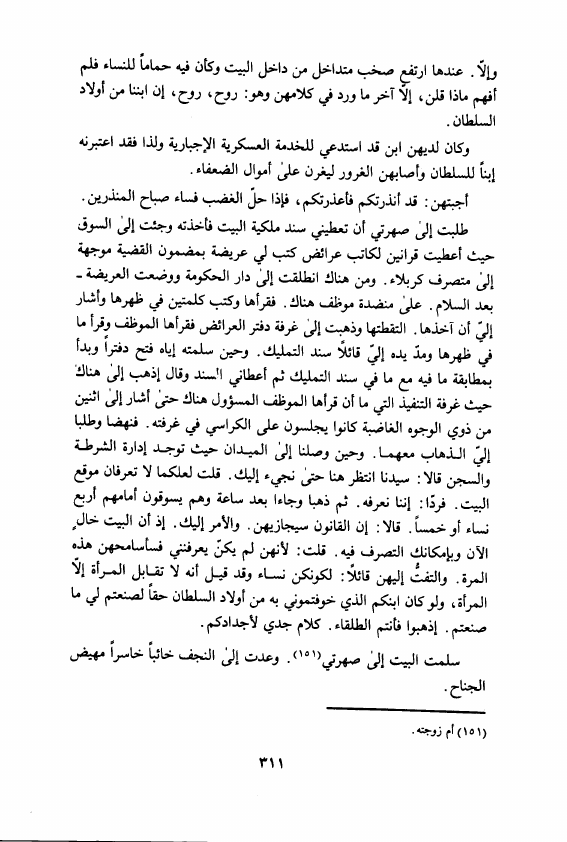 وإلّا. عندها ارتفع صخب متداخل من داخل البيت وكأن فيه حماماً للنساء فلم
أفهم ماذا قلن، إلّا آخر ما ورد في كلامهن وهو: روح، روح، إن ابننا من أولاد
السلطان.
وكان لديهن ابن قد استدعي للخدمة العسكرية الإجبارية ولذا فقد اعتبرنه
إبناً للسلطان وأصابهن الغرور ليغرن علىٰ أموال الضعفاء.
أجبتهن: قد أنذرتكم فأعذرتكم، فإذا حلّ الغضب فساء صباح المنذرين.
طلبت إلىٰ صهرتي أن تعطيني سند ملكية البيت فأخذته وجئت إلىٰ السوق
حيث أعطيت قرانين لكاتب عرائض كتب لي عريضة بمضمون القضية موجهة
إلىٰ متصرف كربلاء. ومن هناك انطلقت إلىٰ دار الحكومة ووضعت العريضة ـ
بعد السلام. علىٰ منضدة موظف هناك. فقرأها وكتب كلمتين في ظهرها وأشار
إليّ أن آخذها. التقطتها وذهبت إلىٰ غرفة دفتر العرائض فقرأها الموظف وقرأ ما
في ظهرها ومدّ يده إليّ قائلًا سند التمليك. وحين سلمته إياه فتح دفتراً وبدأ
بمطابقة ما فيه مع ما في سند التمليك ثم أعطاني السند وقال إذهب إلىٰ هناك
حيث غرفة التنفيذ التي ما أن قرأها الموظف المسؤول هناك حتىٰ أشار إلىٰ اثنين
من ذوي الوجوه الغاضبة كانوا يجلسون على الكراسي في غرفته. فنهضا وطلبا
إليّ الـذهاب معهمـا. وحين وصلنا إلىٰ الميـدان حيث توجـد إدارة الشرطـة
والسجن قالا: سيدنا انتظر هنا حتىٰ نجيء إليك. قلت لعلكما لا تعرفان موقع
البيت. فردّا: إننا نعرفه. ثم ذهبا وجاءا بعد ساعة وهم يسوقون أمامهم أربع
نساء أو خمساً. قالا: إن القانون سيجازيهن. والأمر إليك. إذ أن البيت خالٍ
الآن وبإمكانك التصرف فيه. قلت: لأنهن لم يكنّ يعرفنني فسأسامحهن هذه
المرة. والتفتُّ إليهن قائلًا: لكونكن نسـاء وقد قيـل أنه لا تقابل المـرأة إلّا
المرأة، ولو كان ابنكم الذي خوفتموني به من أولاد السلطان حقاً لصنعتم لي ما
صنعتم. إذهبوا فأنتم الطلقاء. كلام جدي لأجدادكم.
سلمت البيت إلىٰ صهرتي(١٥١). وعدت إلىٰ النجف خائباً خاسراً مهيض
الجناح.
(١٥١) أم زوجته.
٣١١